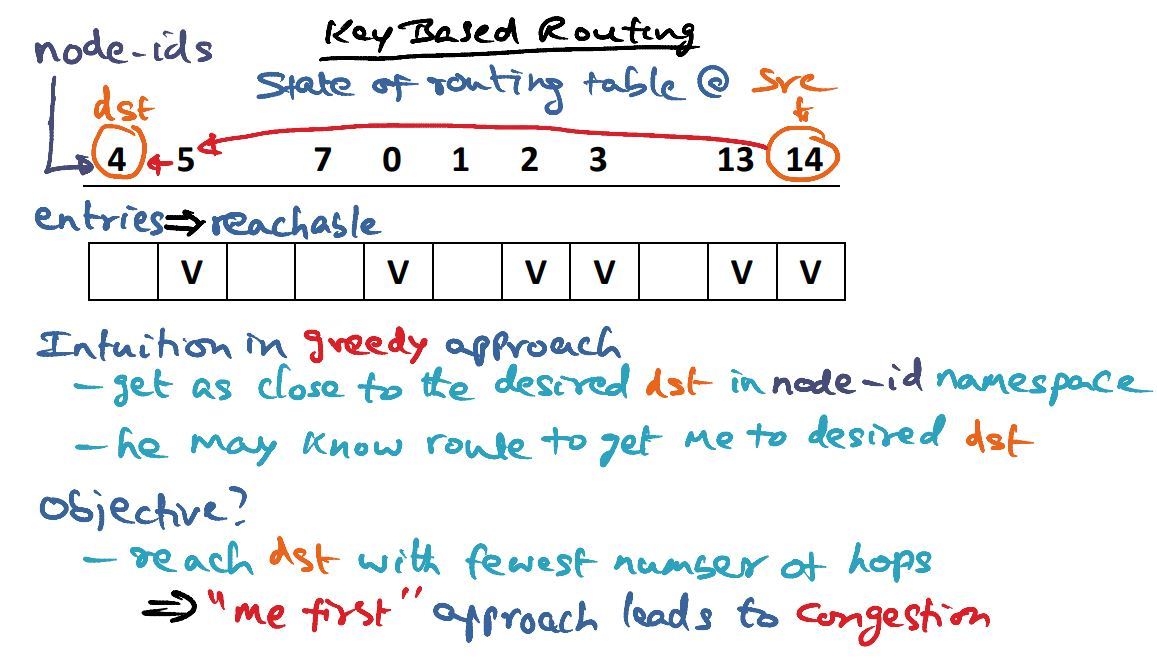 Key Based Routing
node-ids
State of routing table @ src
dst
4 5 7 0 1 2 3 13 14
entries ⇒ reachable
V V V V V V
Intuition in greedy approach
- get as close to the desired dst in node-id namespace
- he may know route to get me to desired dst
Objective?
- reach dst with fewest number of hops
⇒ "me first" approach leads to congestion